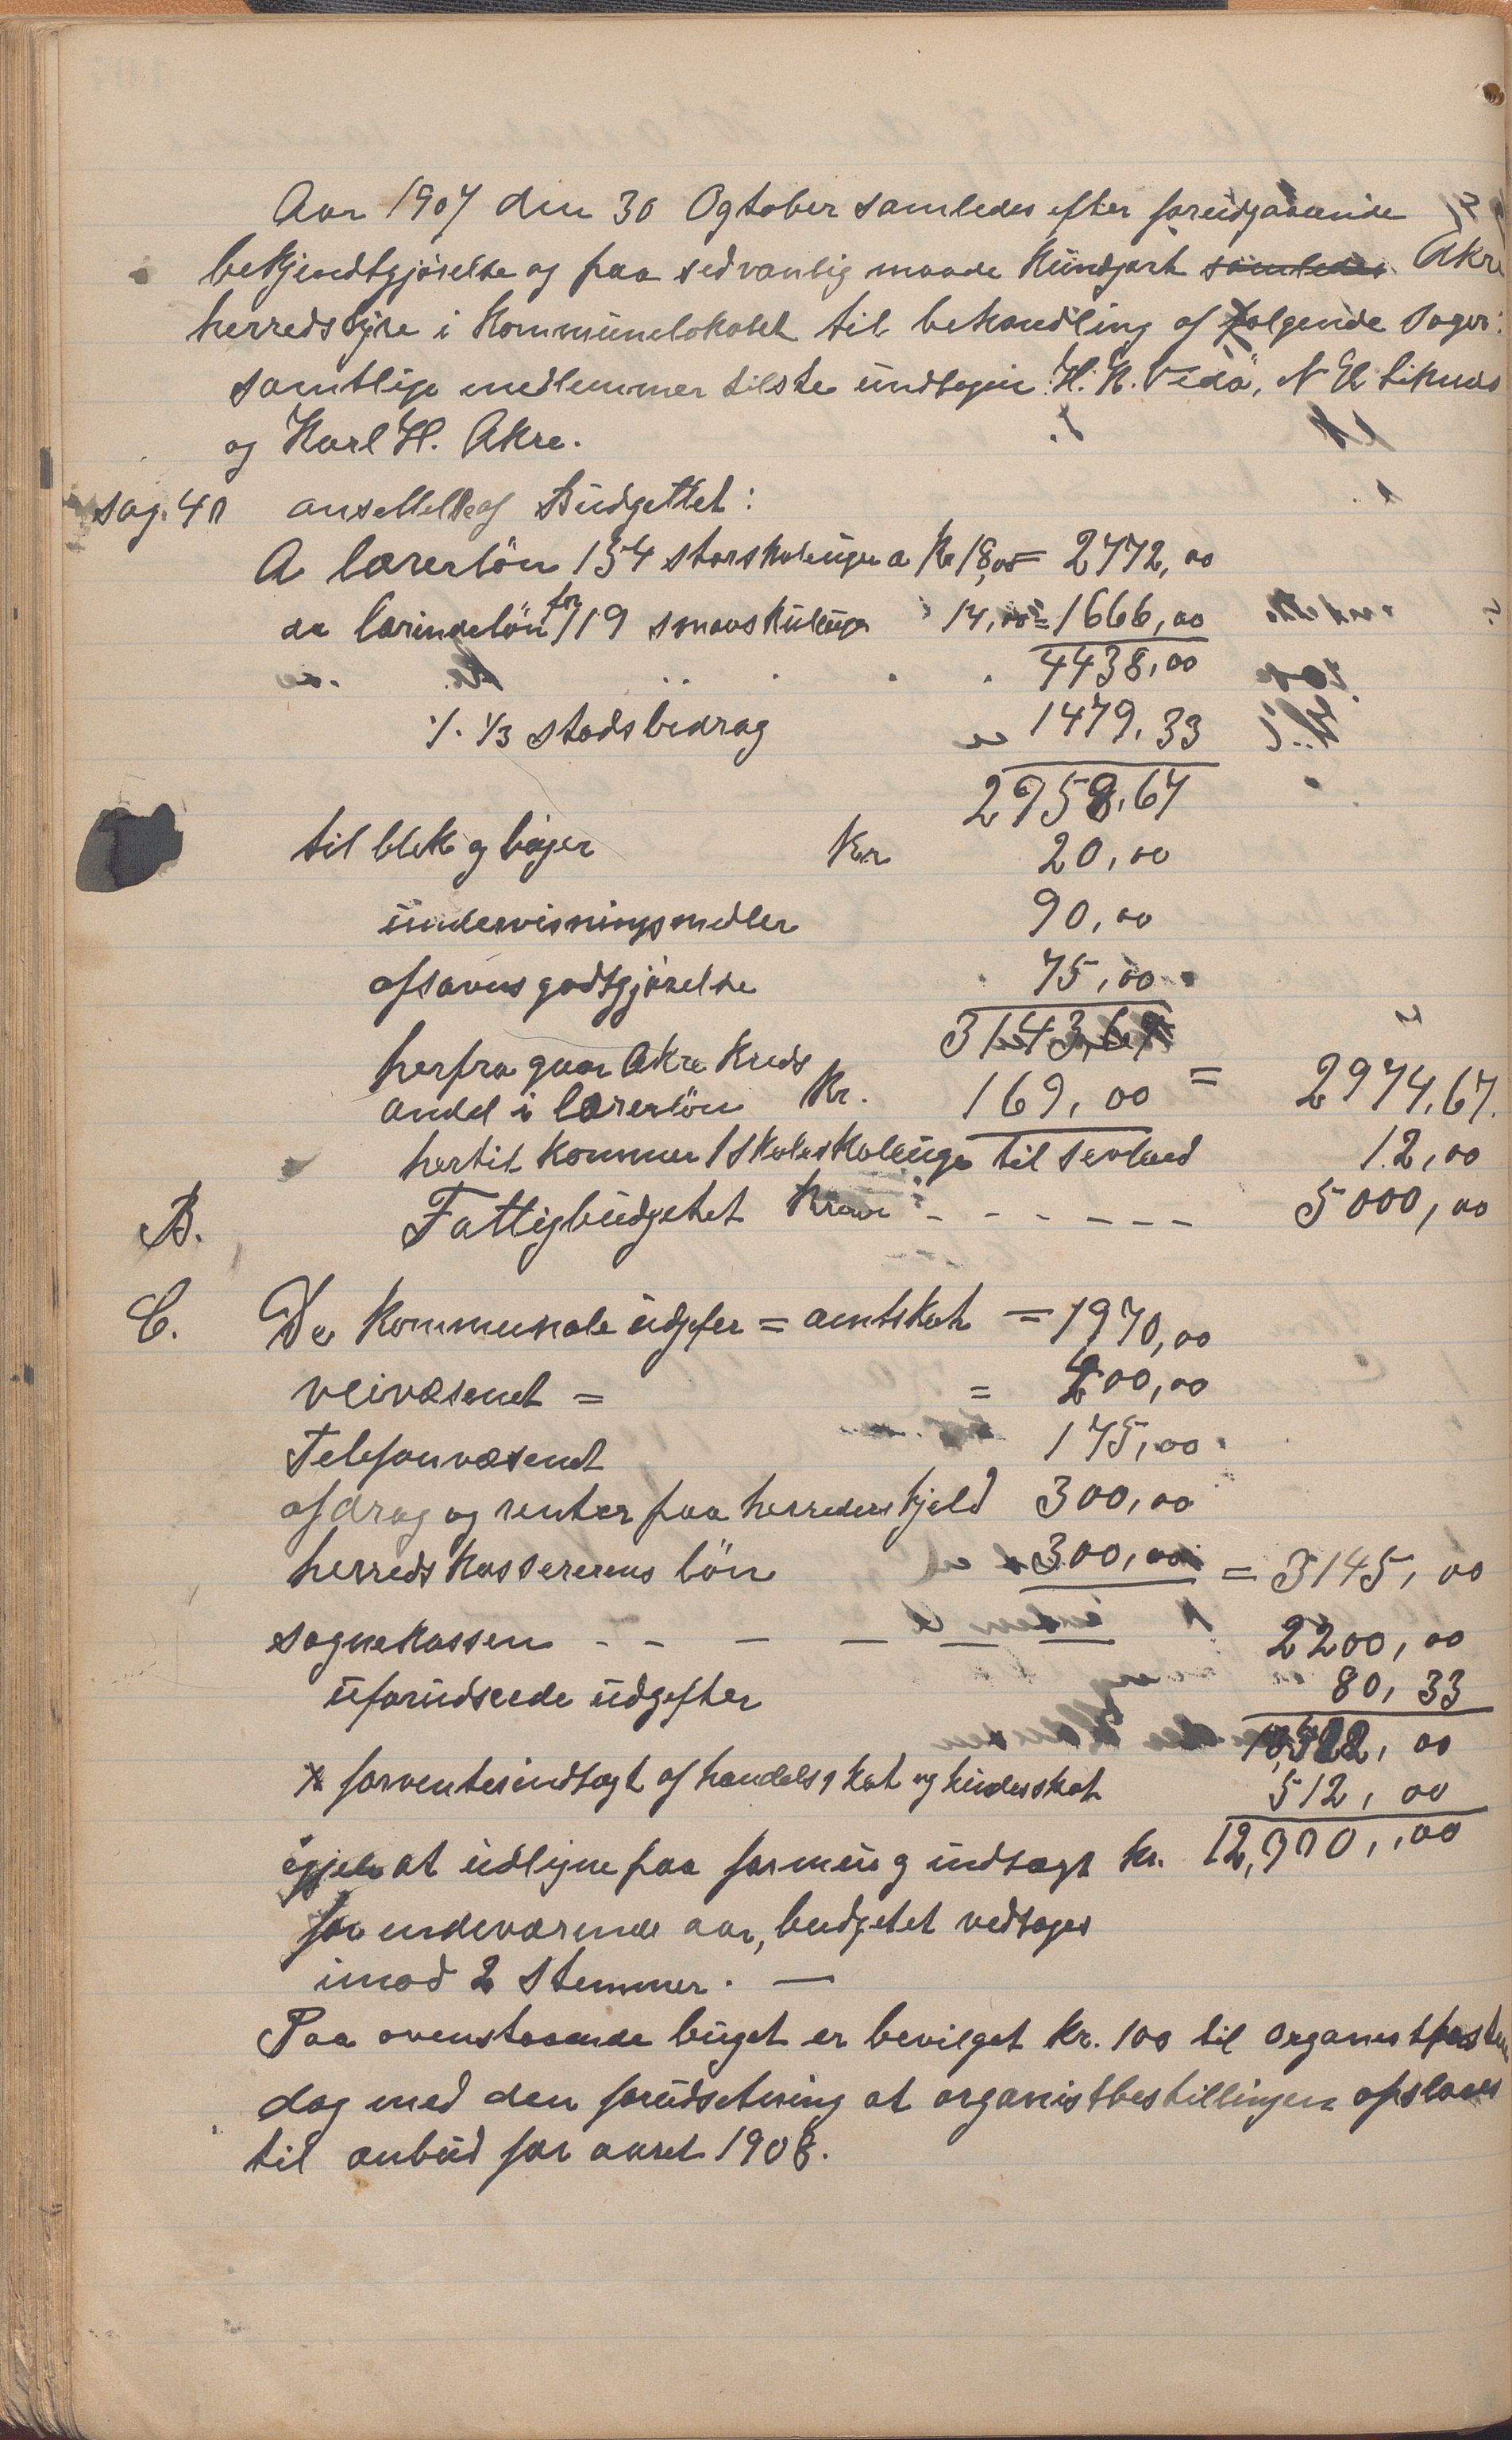 Aar 1907 den 30 Ogtober samledes efter forudgaaende
bekjendtgjörelse og paa sedvanlig maade kundgort samledes Akre
herredstyre i Kommunelokalet til behandling af følgende Sager:
samtlige medlemmer tilste undtagen H. K. Vedö, N E
og Karl H. Akre.
sag. 41 ansettelse af Budgettet:
A lærerlön 154 storskoleuger a Kr 18,00 = 2772,00
do lærindelön for 119 smaaskuleuger 14,00 = 1666,00
4438,00
1/3 stadsbidrag 1479,33
2958,67
til blek og böger Kr 20,00
undervisningsmidler 90,00
afsavns godtgjörelse 75,00
3143,67
herfra gaar Akre Kreds
andel i lærerlön Kr. 169,00 = 2974,67.
hertil kommer 1 Skoleskoleuge til 12,00
B. Fattigbudgetet Kroner - - - - - - 5000,00
C. De Kommunale udgfer = amtskat = 1970,00
veivæsenet = = 400,00
Telefonvæsenet 175,00
afdrag og renter paa herredets gjeld 300,00
herredskassererens lön 300,00 = 3145,00
sognekassen - - - - - - 2200,00
uforudseede udgefter 80,33
forventes indtægt af handelsskat og hundeskat 512,00
igjen at udligne paa formue og indtægt kr. 12,900,00
for indeværende aar, budgetet vedtoges
imod 2 Stemmer. —
Paa ovenstaaende buget er bevilget Kr. 100 til organistposten
dog med den forudsetning at organistbestillingen opslaaes
til anbud for aaret 1908.